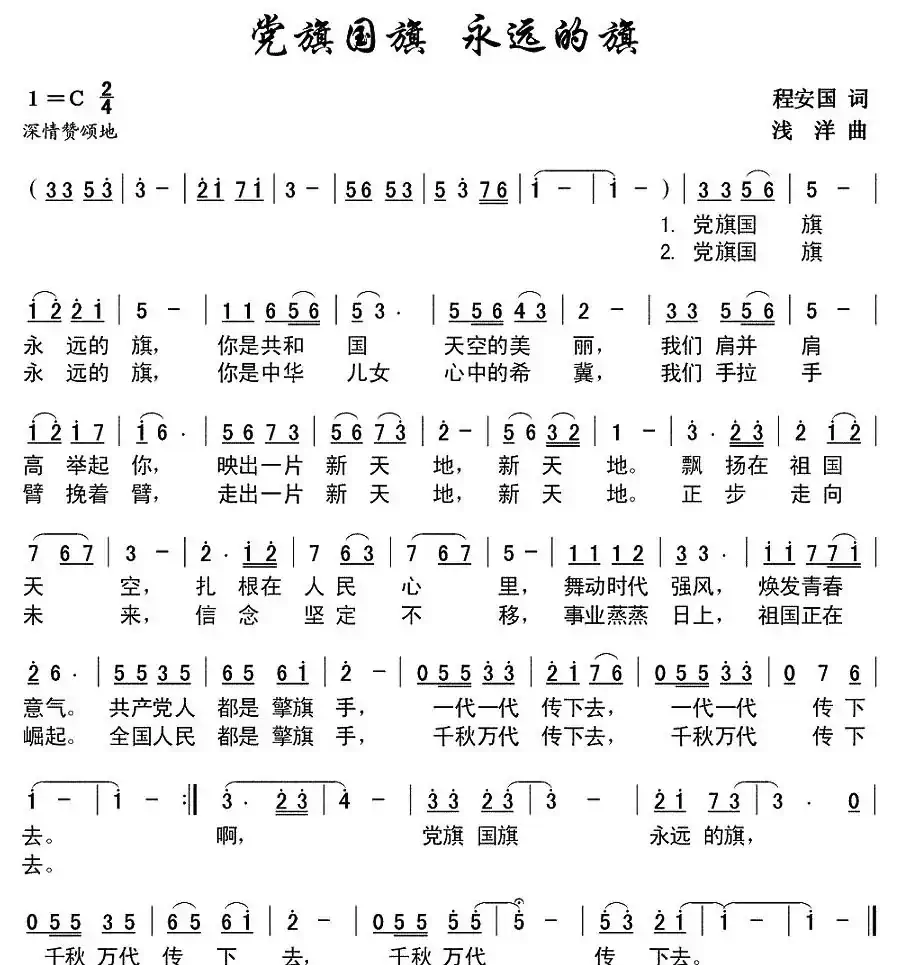 党旗国旗 永远的旗
1=C 2/4 程安国 词
深情赞颂地 浅 洋 曲
( 3 3 5 3̇ | 3̇ - | 2̇ 1̇ 7 1̇ | 3 - | 5 6 5 3 | 5 3̇ 7 6 | 1̇ - | 1̇ - ) | 3 3 5 6 | 5 - |
1. 党旗国 旗
2. 党旗国 旗
1̇ 2̇ 2̇ 1̇ | 5 - | 1 1 6 5 6 | 5 3 · | 5 5 6 4 3 | 2 - | 3 3 5 5 6 | 5 - |
永 远的 旗, 你是共和 国 天空的美 丽, 我们 肩并 肩
永 远的 旗, 你是中华 儿女 心中的希 冀, 我们 手拉 手
1̇ 2̇ 1̇ 7 | 1̇ 6 · | 5 6 7 3 | 5 6 7 3̇ | 2̇ - | 5 6 3 2 | 1 - | 3̇ · 2̇ 3̇ | 2 1̇ 2̇ |
高 举起 你, 映出一片 新 天 地, 新 天 地。 飘 扬在 祖 国
臂 挽着 臂, 走出一片 新 天 地, 新 天 地。 正 步 走 向
7 6 7 | 3 - | 2̇ · 1̇ 2̇ | 7 6 3 | 7 6 7 | 5 - | 1 1 1 2 | 3 3 · | 1̇ 1̇ 7 7 1̇ |
天 空, 扎 根在 人 民 心 里, 舞动时代 强风, 焕发青春
未 来, 信 念 坚 定 不 移, 事业蒸蒸 日上, 祖国正在
2̇ 6 · | 5 5 3 5 | 6 5 6 1̇ | 2̇ - | 0 5 5 3̇ 3̇ | 2̇ 1̇ 7 6 | 0 5 5 3̇ 3̇ | 0 7 6 |
意气。 共产党人 都是 擎旗 手, 一代一代 传下去, 一代一代 传 下
崛起。 全国人民 都是 擎旗 手, 千秋万代 传下去, 千秋万代 传 下
1̇ - | 1̇ - :‖ 3̇ · 2̇ 3̇ | 4̇ - | 3̇ 3̇ 2̇ 3̇ | 3̇ - | 2̇ 1̇ 7 3̇ | 3̇ · 0 |
去。 啊, 党旗 国旗 永远 的旗,
去。
0 5 5 3 5 | 6 5 6 1̇ | 2̇ - | 0 5 5 5̇ 5̇ | 5̇ - | 5 3̇ 2̇ 1̇ | 1̇ - | 1̇ - ‖
千秋 万代 传 下 去, 千秋 万代 传 下去。